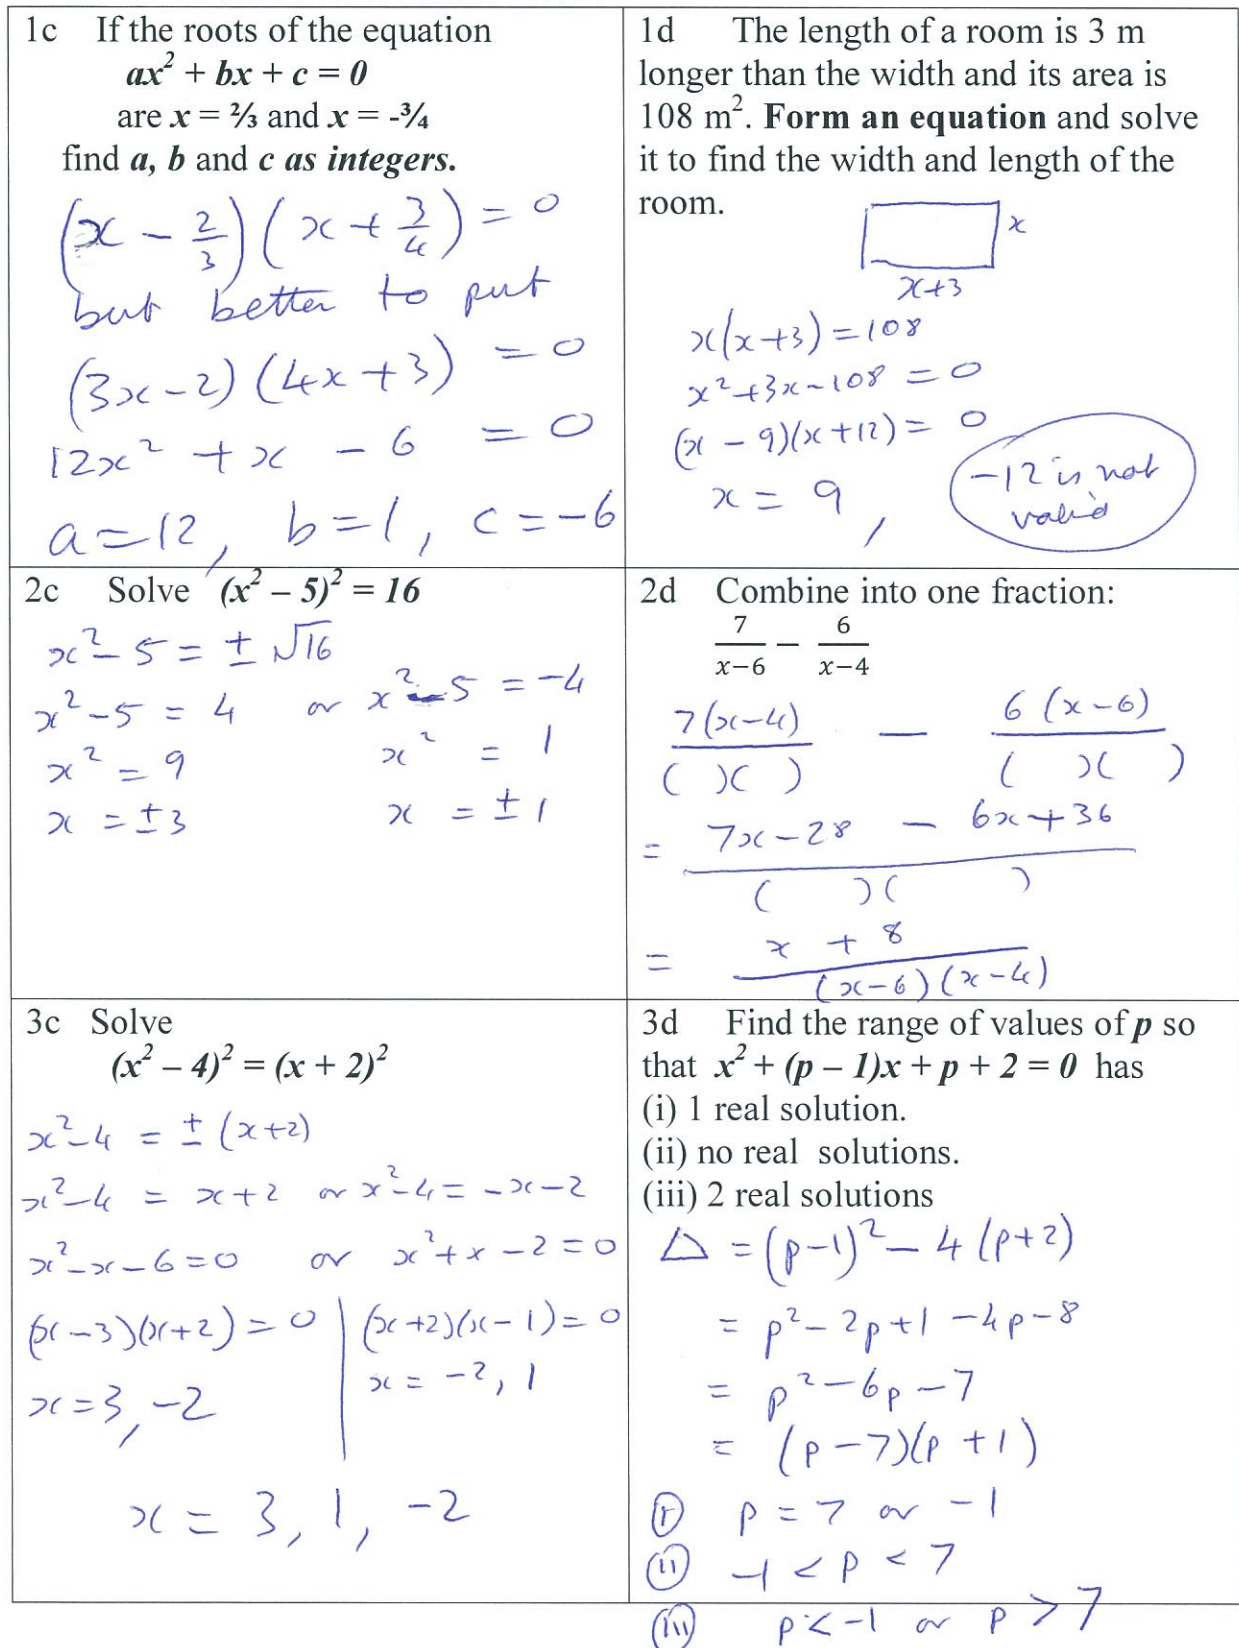 1c If the roots of the equation
ax² + bx + c = 0
are x = ⅔ and x = -¾
find a, b and c as integers.
(x - 2/3)(x + 3/4) = 0
but better to put
(3x-2)(4x+3) = 0
12x² + x - 6 = 0
a=12, b=1, c=-6
1d The length of a room is 3 m
longer than the width and its area is
108 m². Form an equation and solve
it to find the width and length of the
room.
x
x+3
x(x+3)=108
x²+3x-108 = 0
(x - 9)(x+12) = 0
x = 9,
-12 is not
valid
2c Solve (x² – 5)² = 16
x²-5 = ± √16
x²-5 = 4 or x²-5 = -4
x² = 9 x² = 1
x = ±3 x = ±1
2d Combine into one fraction:
7/(x−6) − 6/(x−4)
7(x-4)/( )( ) - 6(x-6)/( )( )
= (7x-28 - 6x+36)/( )( )
= (x + 8)/(x-6)(x-4)
3c Solve
(x² – 4)² = (x + 2)²
x²-4 = ± (x+2)
x²-4 = x+2 or x²-4 = -x-2
x²-x-6=0 or x²+x-2=0
(x-3)(x+2)=0 (x+2)(x-1)=0
x=3,-2 x = -2, 1
x = 3, 1, -2
3d Find the range of values of p so
that x² + (p – 1)x + p + 2 = 0 has
(i) 1 real solution.
(ii) no real solutions.
(iii) 2 real solutions
△ = (p-1)² - 4(p+2)
= p²-2p+1-4p-8
= p²-6p-7
= (p-7)(p+1)
(i) p = 7 or -1
(ii) -1 < p < 7
(iii) p<-1 or p > 7